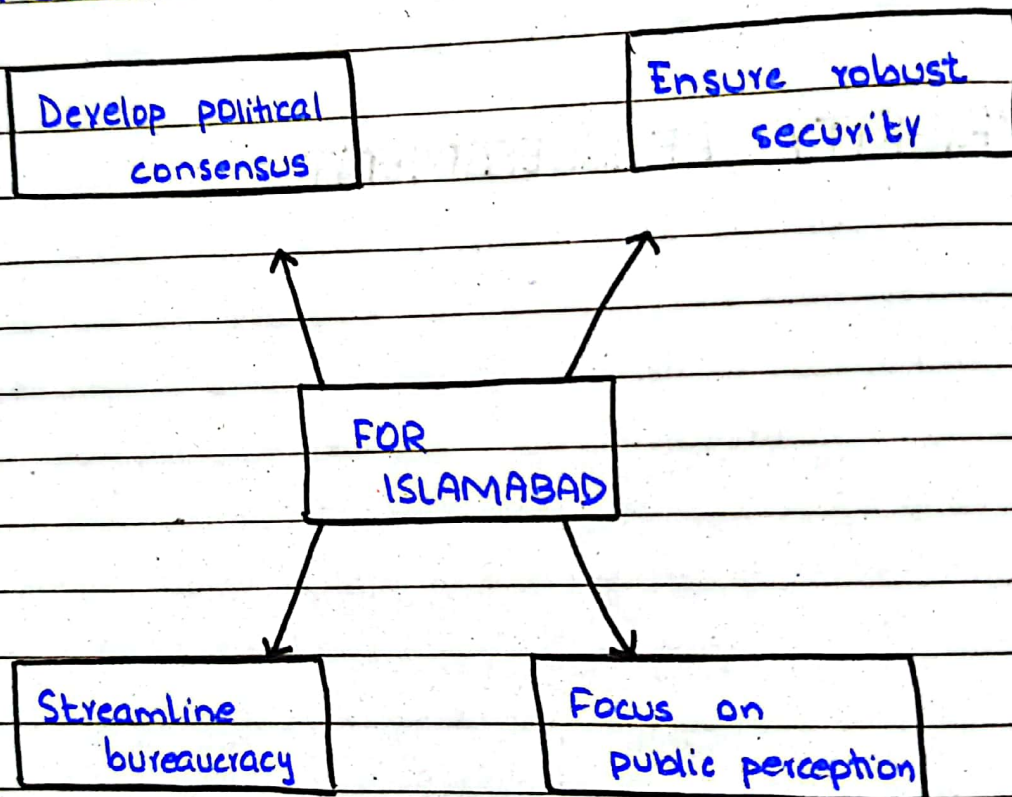 Develop political
consensus
Ensure robust
security
FOR
ISLAMABAD
Streamline
bureaucracy
Focus on
public perception